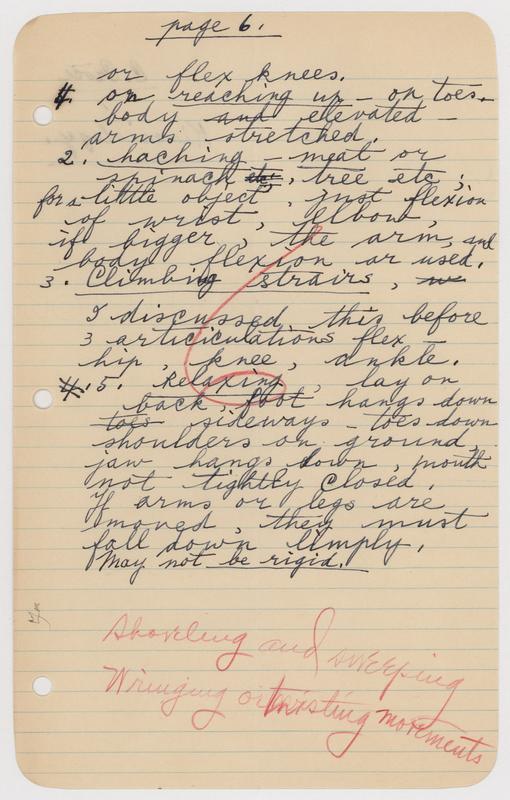 page 6.
or flex knees.
on reaching up - on toes.
body and elevated -
arms stretched.
2. haching - meat or
spinach etc:, tree etc;
for a little object, just flexion
of wrist, elbow,
if bigger, the arm, and
body flexion or used.
3. Climbing strairs,
I discussed this before
3 articiculations flex -
hip, knee, ankle.
4. 5. Relaxing, lay on
back, foot hangs down
toes sideways - toes down
shoulders on ground,
jaw hangs down, mouth
not tightly closed.
If arms or legs are
moved, they must
fall down limply.
May not be rigid.
Shoveling and sweeping
Wringing or twisting movements